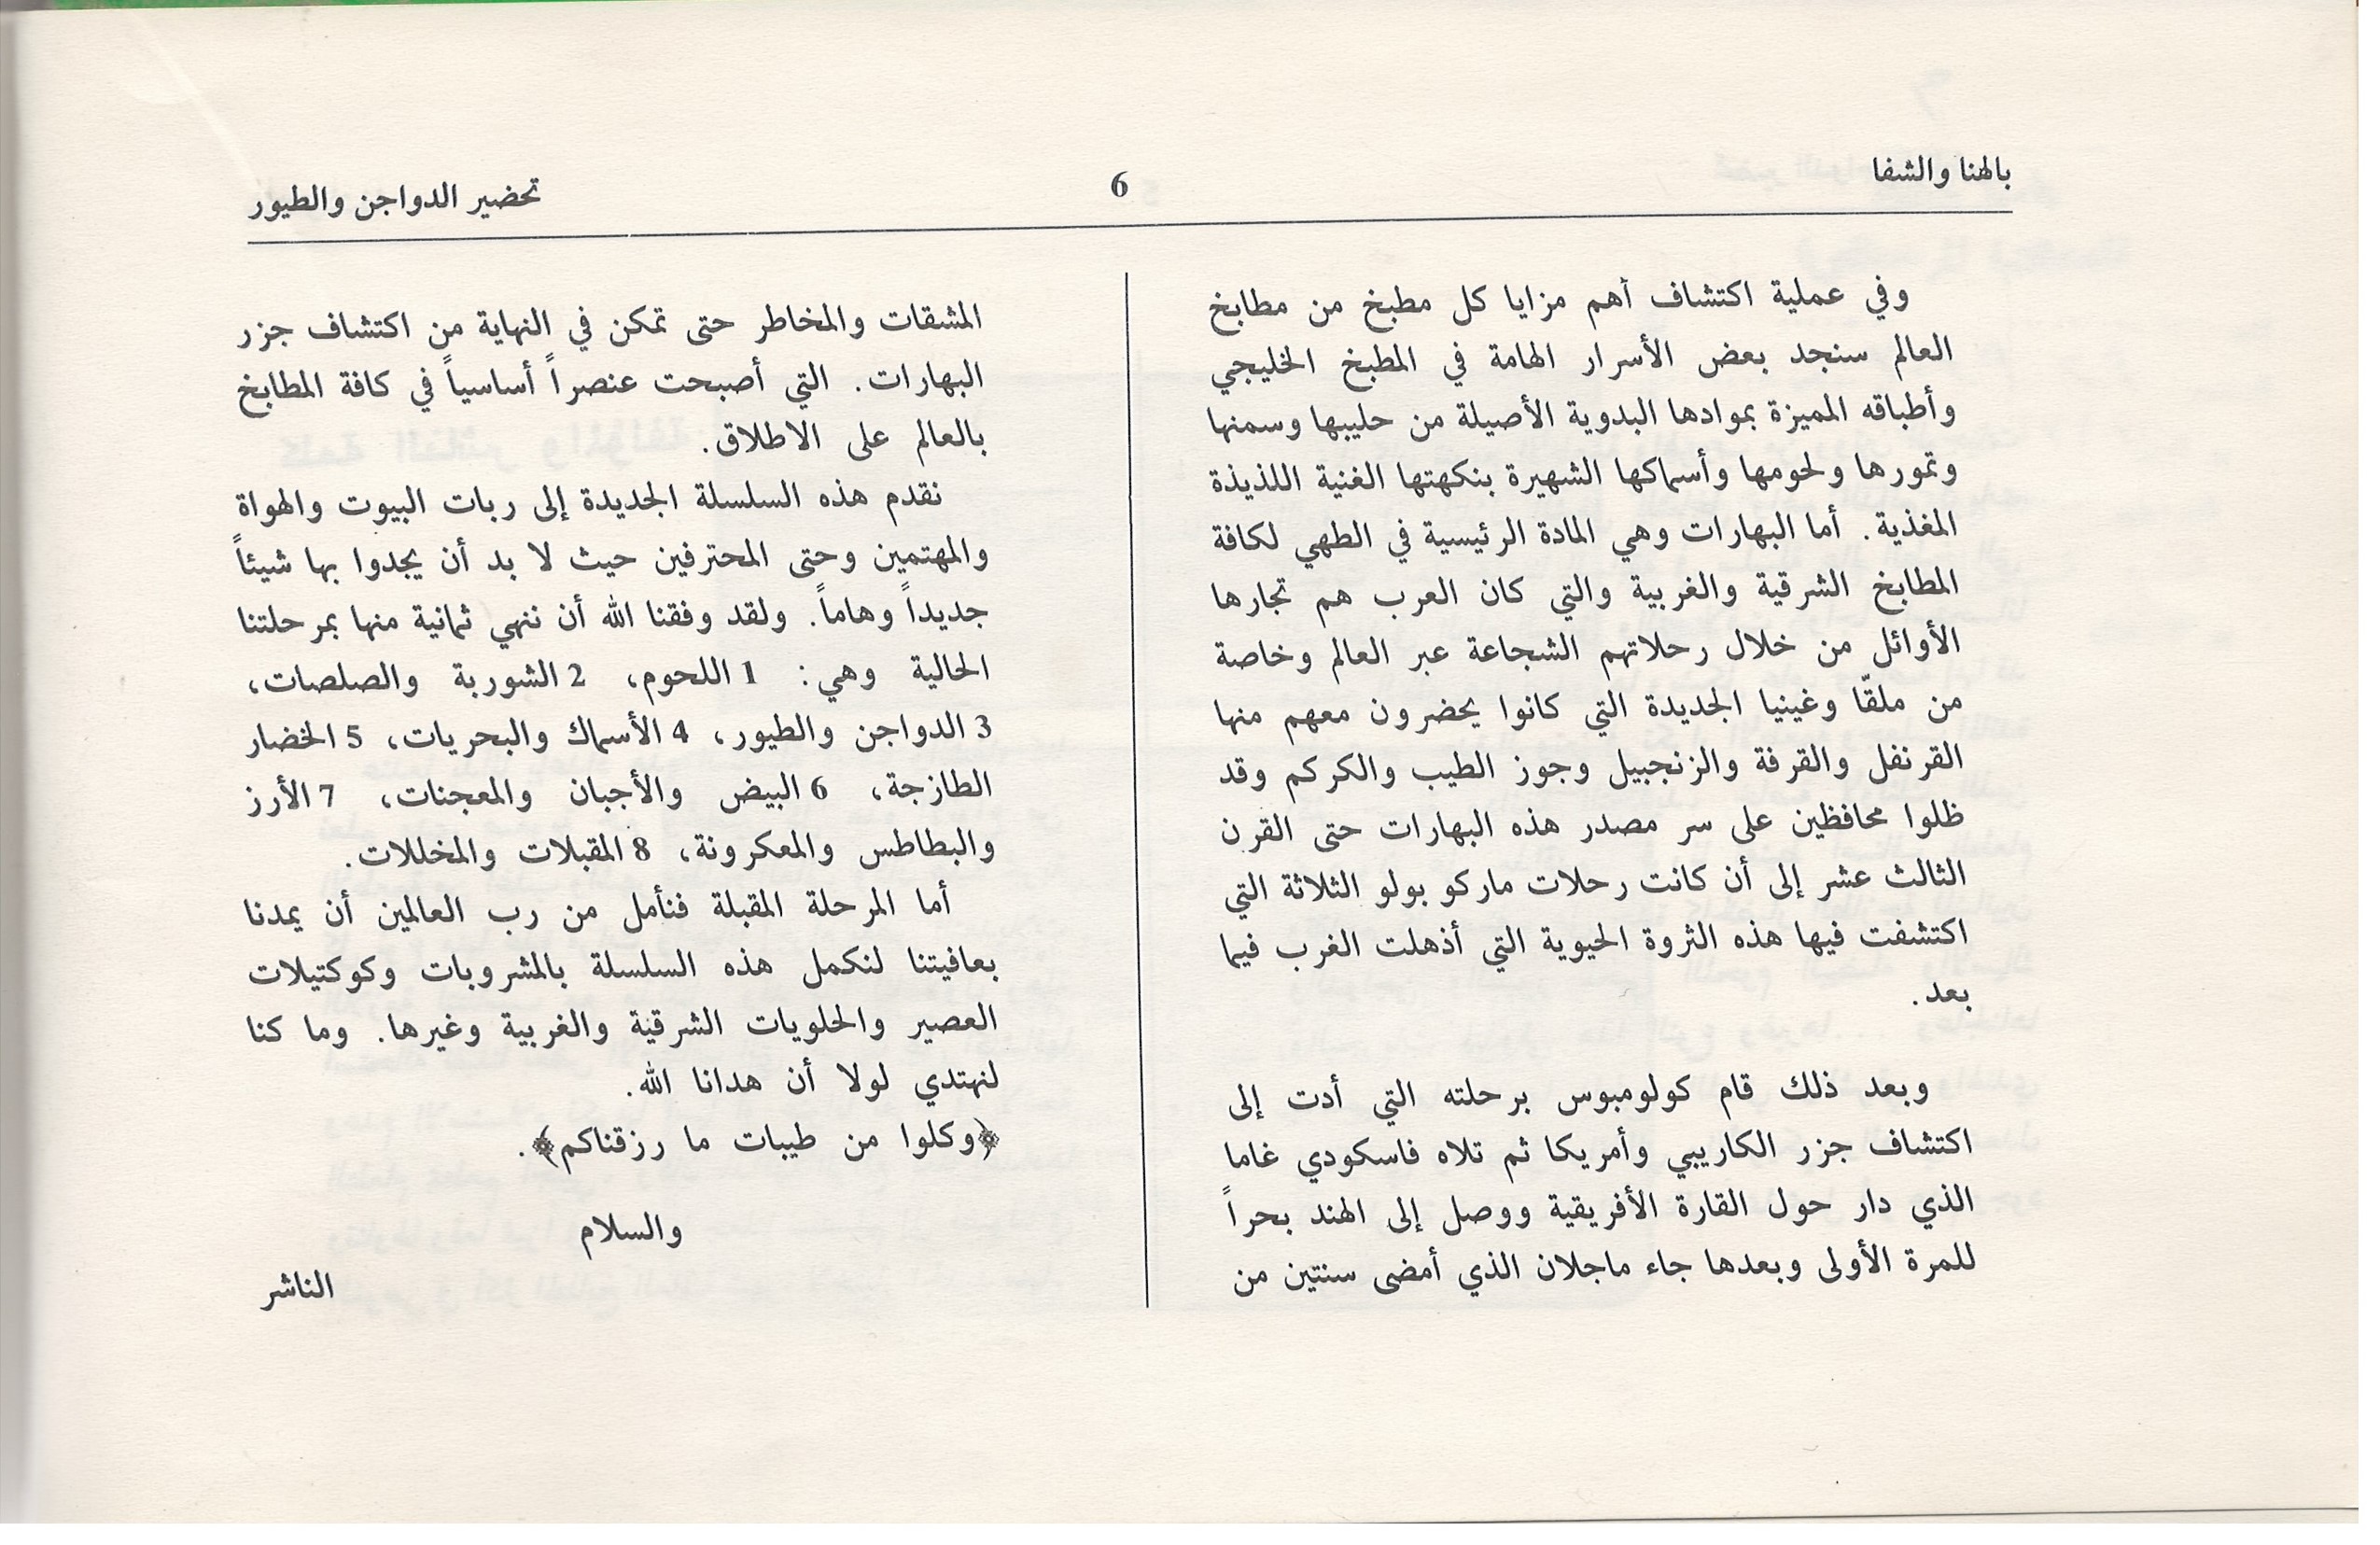 بالهنا والشفا 6 تحضير الدواجن والطيور
وفي عملية اكتشاف أهم مزايا كل مطبخ من مطابخ
العالم سنجد بعض الأسرار الهامة في المطبخ الخليجي
وأطباقه المميزة بموادها البدوية الأصيلة من حليبها وسمنها
وتمورها ولحومها وأسماكها الشهيرة بنكهتها الغنية اللذيذة
المغذية. أما البهارات وهي المادة الرئيسية في الطهي لكافة
المطابخ الشرقية والغربية والتي كان العرب هم تجارها
الأوائل من خلال رحلاتهم الشجاعة عبر العالم وخاصة
من ملقّا وغينيا الجديدة التي كانوا يحضرون معهم منها
القرنفل والقرفة والزنجبيل وجوز الطيب والكركم وقد
ظلوا محافظين على سر مصدر هذه البهارات حتى القرن
الثالث عشر إلى أن كانت رحلات ماركو بولو الثلاثة التي
اكتشفت فيها هذه الثروة الحيوية التي أذهلت الغرب فيما
بعد.
وبعد ذلك قام كولومبوس برحلته التي أدت إلى
اكتشاف جزر الكاريبي وأمريكا ثم تلاه فاسكودي غاما
الذي دار حول القارة الأفريقية ووصل إلى الهند بحراً
للمرة الأولى وبعدها جاء ماجلان الذي أمضى سنتين من
المشقات والمخاطر حتى تمكن في النهاية من اكتشاف جزر
البهارات. التي أصبحت عنصراً أساسياً في كافة المطابخ
بالعالم على الاطلاق.
نقدم هذه السلسلة الجديدة إلى ربات البيوت والهواة
والمهتمين وحتى المحترفين حيث لا بد أن يجدوا بها شيئاً
جديداً وهاماً. ولقد وفقنا الله أن ننهي ثمانية منها بمرحلتنا
الحالية وهي: 1 اللحوم، 2 الشوربة والصلصات،
3 الدواجن والطيور، 4 الأسماك والبحريات، 5 الخضار
الطازجة، 6 البيض والأجبان والمعجنات، 7 الأرز
والبطاطس والمعكرونة، 8 المقبلات والمخللات.
أما المرحلة المقبلة فنأمل من رب العالمين أن يمدنا
بعافيتنا لنكمل هذه السلسلة بالمشروبات وكوكتيلات
العصير والحلويات الشرقية والغربية وغيرها. وما كنا
لنهتدي لولا أن هدانا الله.
﴿وكلوا من طيبات ما رزقناكم﴾.
والسلام
الناشر